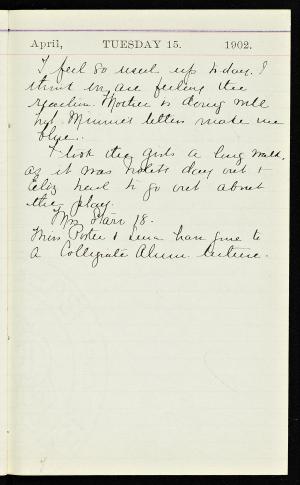 April, TUESDAY 15. 1902.
I feel so used up to-day. I
think we are feeling the
reaction. Mother is doing well
but Minnie's letters make me
blue.
I took the girls a long walk,
as it was day out &
had to go out about
the play.
Mrs Starr 18.
Miss Porter & Lena have gone to
a Collegiate Alum. lecture.